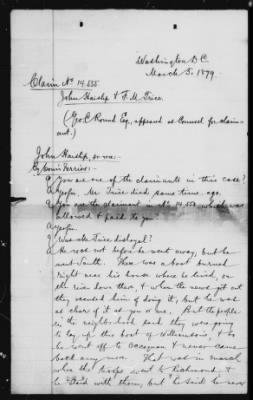 Washington D.C.
March 5. 1879.
Claim No. 14.555
John Haislip & F. M. Trice.
(Geo. C. Round Esq., appeared as Counsel for claim-
ant.)
John Haislip, sworn:-
By Com'r Ferriss:
Q. You are one of the claimants in this case?
A. Yessir, Mr Trice died some time ago.
Q. You are the claimant in No 14.554 which was
allowed & paid to you?
A. Yessir.
Q. Was Mr Trice disloyal?
A. He was not before he went away, but he
went South. There was a boat burned
right near his house where he lived, on
the river down there, & when the news got out
they accused him of doing it, but he was
as clear of it as you or me. But the people
in the neighborhood said they were going
to lay this boat of Williamsons, & so
he went off to Occoquan & never came
back any more. That was in march
when the troops went to Richmond &
he staid with them, but he said he never